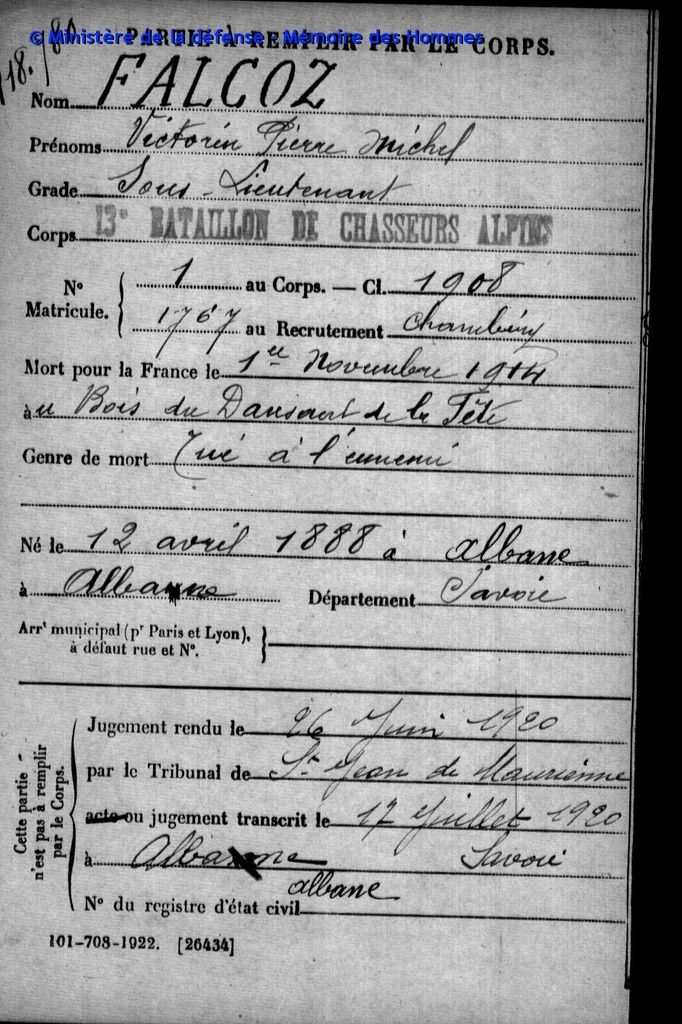 © Ministère de la défense - Mémoire des Hommes
PARTIE À REMPLIR PAR LE CORPS.
Nom FALCOZ
Prénoms Victorin Pierre Michel
Grade Sous-Lieutenant
Corps 13e BATAILLON DE CHASSEURS ALPINS
N° Matricule. { 1 au Corps. — Cl. 1908
1767 au Recrutement Chambéry
Mort pour la France le 1er Novembre 1914
à u Bois du de la Tête
Genre de mort Tué à l'ennemi
Né le 12 avril 1888 à albane
à Albanne Département Savoie
Arrt municipal (pr Paris et Lyon), à défaut rue et N°. }
Cette partie n'est pas à remplir par le Corps.
Jugement rendu le 26 Juin 1920
par le Tribunal de St Jean de Maurienne
acte ou jugement transcrit le 17 Juillet 1920
à Albanne Savoie
albane
N° du registre d'état civil
101-708-1922. [26434]